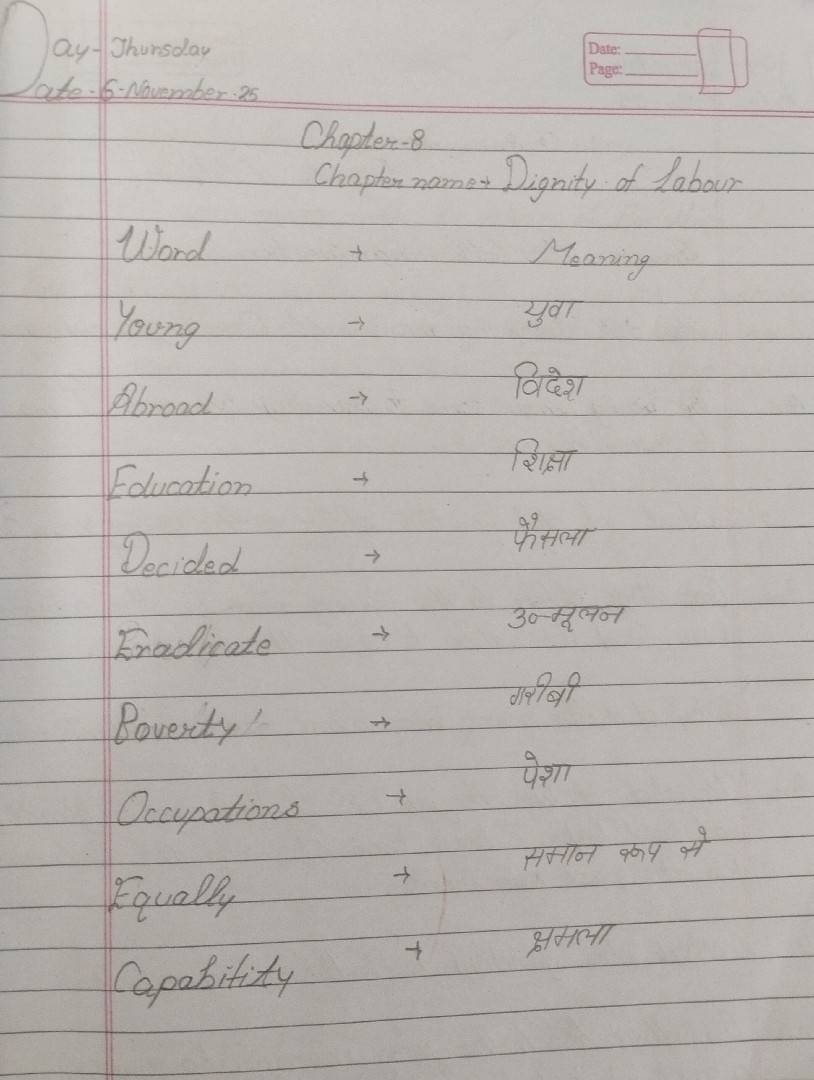 Day - Thursday
Date: Page:
Date - 6 - November - 25
Chapter - 8
Chapter name → Dignity of Labour
Word → Meaning
Young → युवा
Abroad → विदेश
Education → शिक्षा
Decided → फैसला
Eradicate → उन्मूलन
Poverty → गरीबी
Occupations → पेशा
Equally → समान रूप से
Capabitity → क्षमला